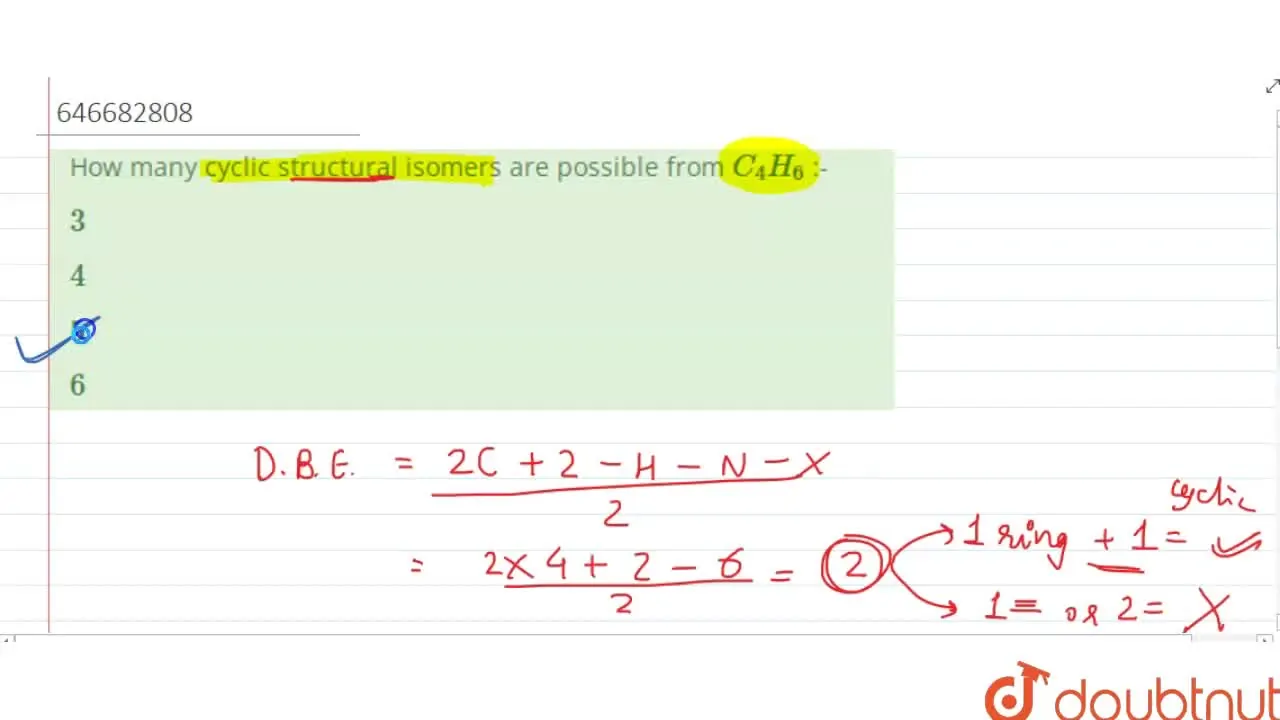 646682808
How many cyclic structural isomers are possible from C₄H₆ :-
3
4
6
D.B.E. = 2C + 2 - H - N - X
2
= 2x4 + 2 - 6 = 2
2
cyclic
1 ring + 1 = ✓
1≡ or 2 = X
doubtnut